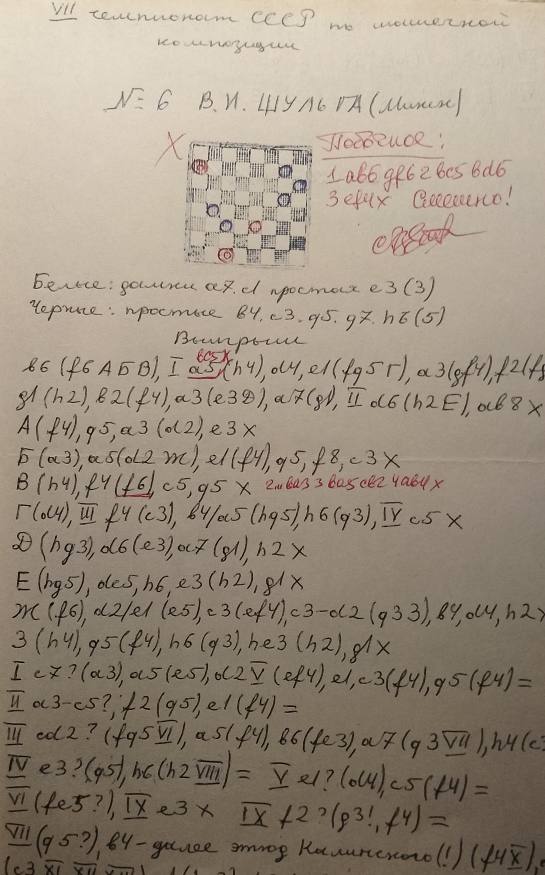 VII чемпионат СССР по шашечной
композиции
№ 6 В.И. ШУЛЬГА (Минск)
X
Побочное:
1 ab6 gf6 2 bc5 bd6
3 ef4x Смешно!
Белые: дамки a7, c1 простая e3 (3)
Черные: простые b4, c3, g5, g7, h6 (5)
Выигрыш
bc5X
b6 (f6 А Б В), I a5 (h4), d4, e1 (fg5 Г), a3 (gf4), f2 (fg
g1 (h2), b2 (f4), a3 (e3 Д), a7 (g1), II d6 (h2 Е), ab8 X
А (f4), g5, a3 (d2), e3 X
Б (a3), a5 (d2 Ж), e1 (f4), g5, f8, c3 X
В (h4), f4 (f6), c5, g5 X 3 ba5 cb2 4 ab4 X
Г (d4), III f4 (c3), b4/a5 (hg5) h6 (g3), IV c5 X
Д (hg3), d6 (e3), a7 (g1), h2 X
Е (hg5), de5, h6, e3 (h2), g1 X
Ж (f6), d2/e1 (e5), c3 (ef4), c3-d2 (g3 З), b4, d4, h2 X
З (h4), g5 (f4), h6 (g3), he3 (h2), g1 X
I c7? (a3), a5 (e5), d2 V (ef4), e1, c3 (f4), g5 (f4) =
II a3-c5?, f2 (g5), e1 (f4) =
III cd2? (fg5 VI), a5 (f4), b6 (fe3), a7 (g3 VII), h4 (c3
IV e3? (g5), h6 (h2 VIII) = V e1? (d4), c5 (f4) =
VI (fe5?), IX e3 X IX f2? (g3!, f4) =
VII (g5?), b4 - далее этюд Калинского (!) (f4 X),